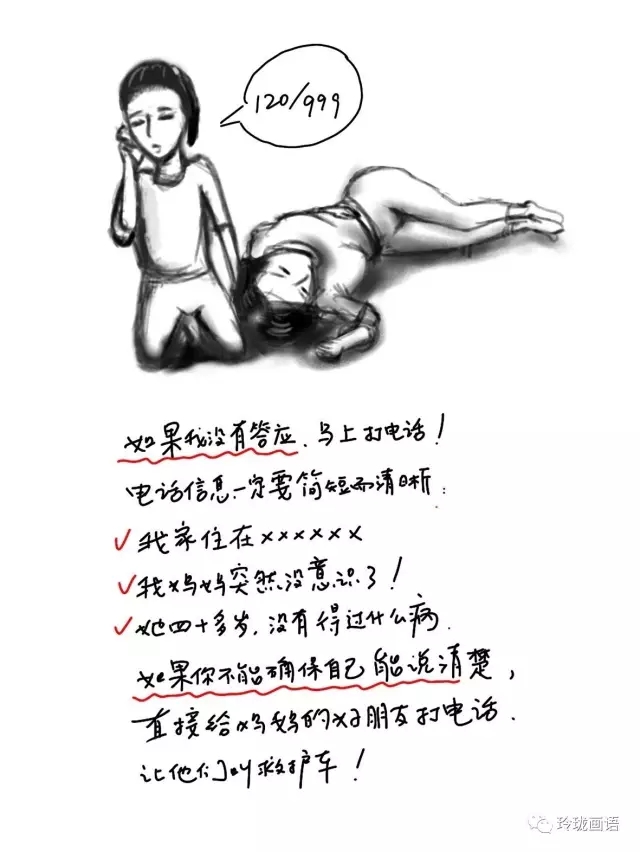 120/999
如果我没有答应、马上打电话！
电话信息一定要简短而清晰：
✓我家住在××××××
✓我妈妈突然没意识了！
✓她四十多岁，没有得过什么病.
如果你不能确保自己能说清楚，
直接给妈妈的好朋友打电话.
让他们叫救护车！
玲珑画语